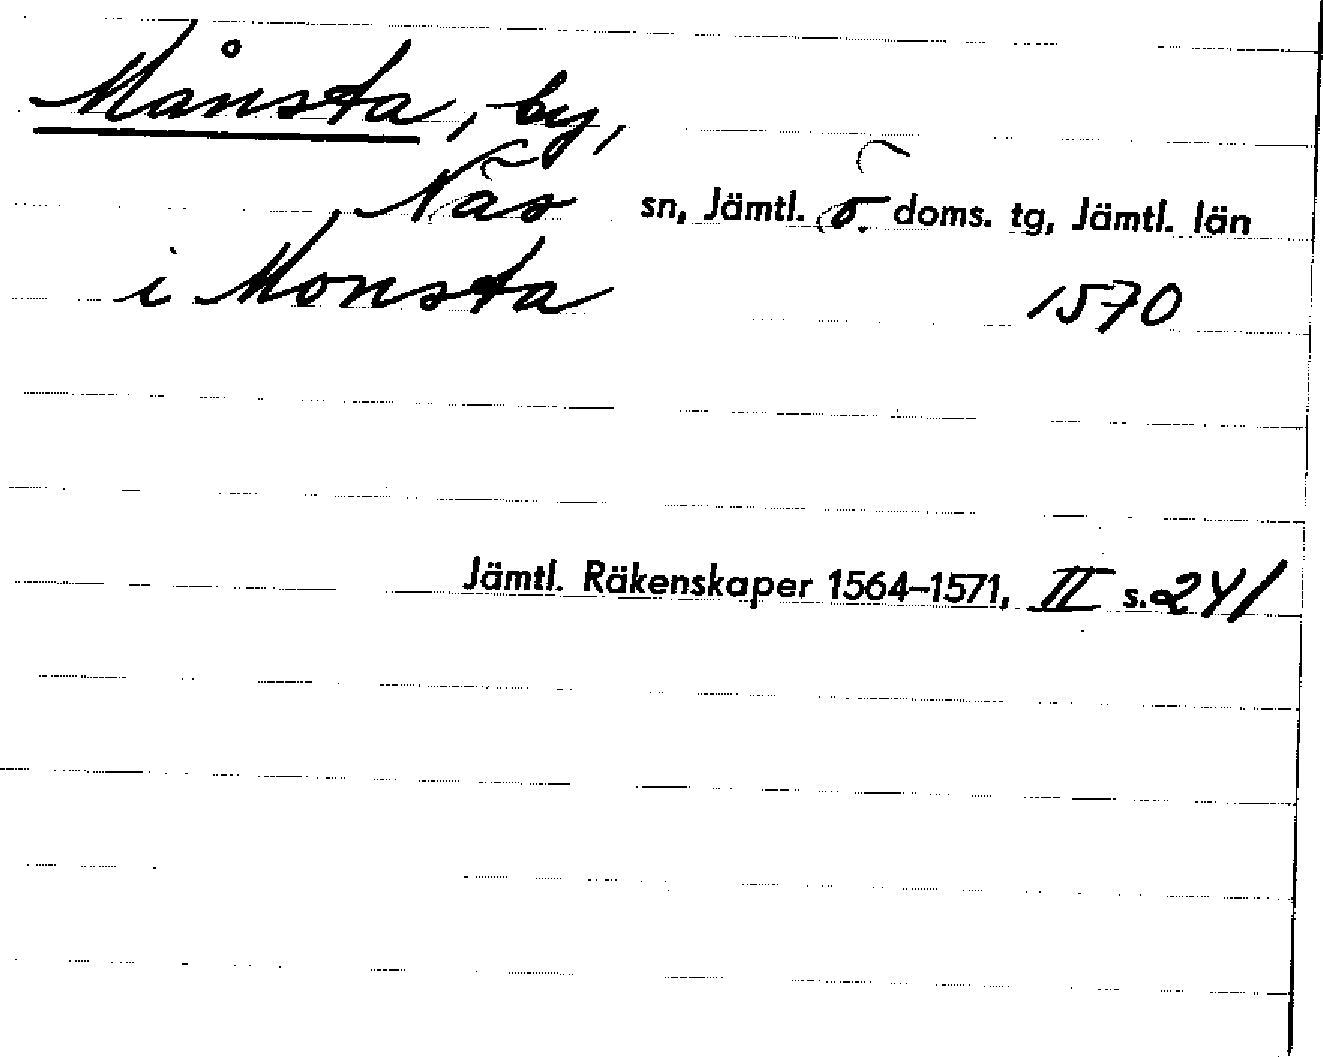 Månsta, by,
Näs sn, Jämtl. ö. doms. tg, Jämtl. län
i Monsta 1570
Jämtl. Räkenskaper 1564–1571, II s. 241